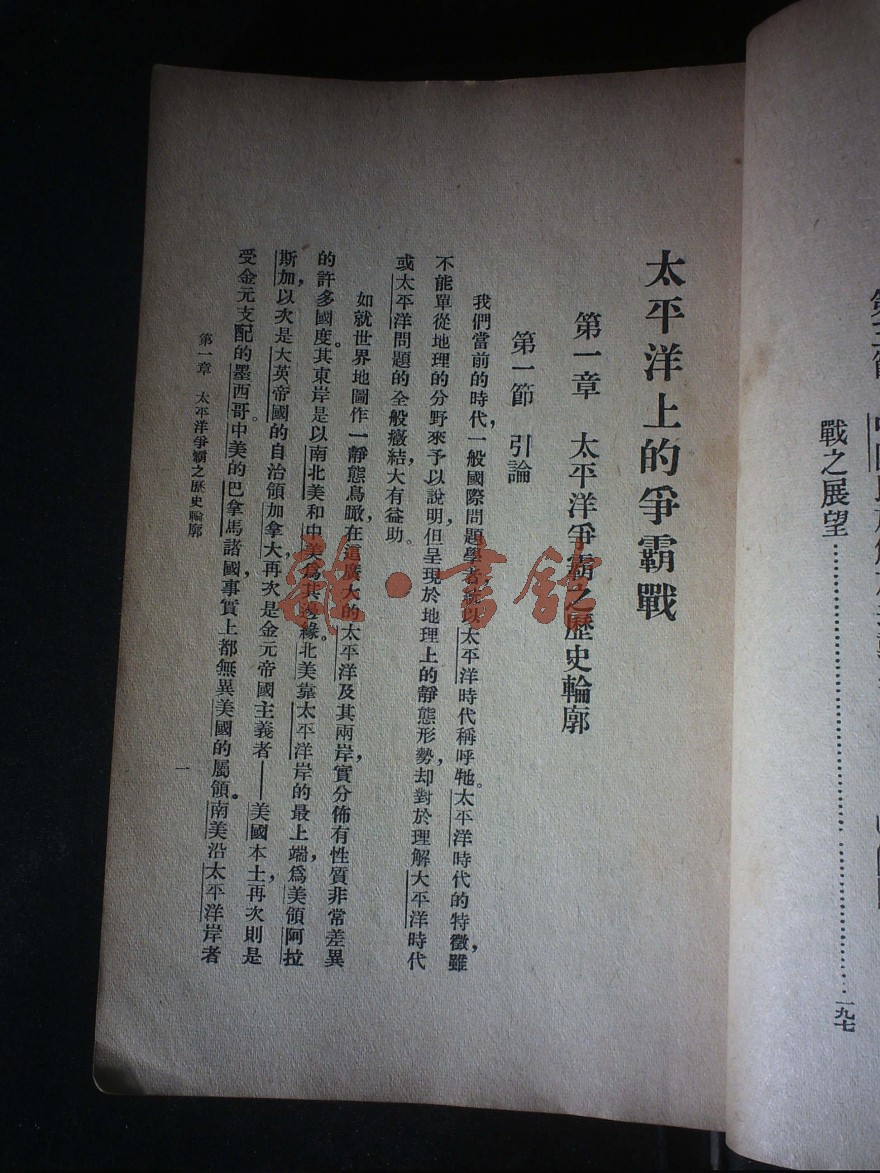 戰之展望……一九七
太平洋上的爭霸戰
第一章 太平洋爭霸之歷史輪廓
第一節 引論
我們當前的時代,一般國際問題學者統以太平洋時代稱呼牠。太平洋時代的特徵,雖
不能單從地理的分野來予以說明,但呈現於地理上的靜態形勢,却對於理解大平洋時代
或太平洋問題的全般癥結大有益助。
如就世界地圖作一靜態鳥瞰,在這廣大的太平洋及其兩岸,實分佈有性質非常差異
的許多國度。其東岸是以南北美和中美爲其邊緣。北美靠太平洋岸的最上端,爲美領阿拉
斯加,以次是大英帝國的自治領加拿大,再次是金元帝國主義者——美國本土,再次則是
受金元支配的墨西哥。中美的巴拿馬諸國,事實上都無異美國的屬領。南美沿太平洋岸者
第一章 太平洋爭霸之歷史輪廓
一
雜·書館